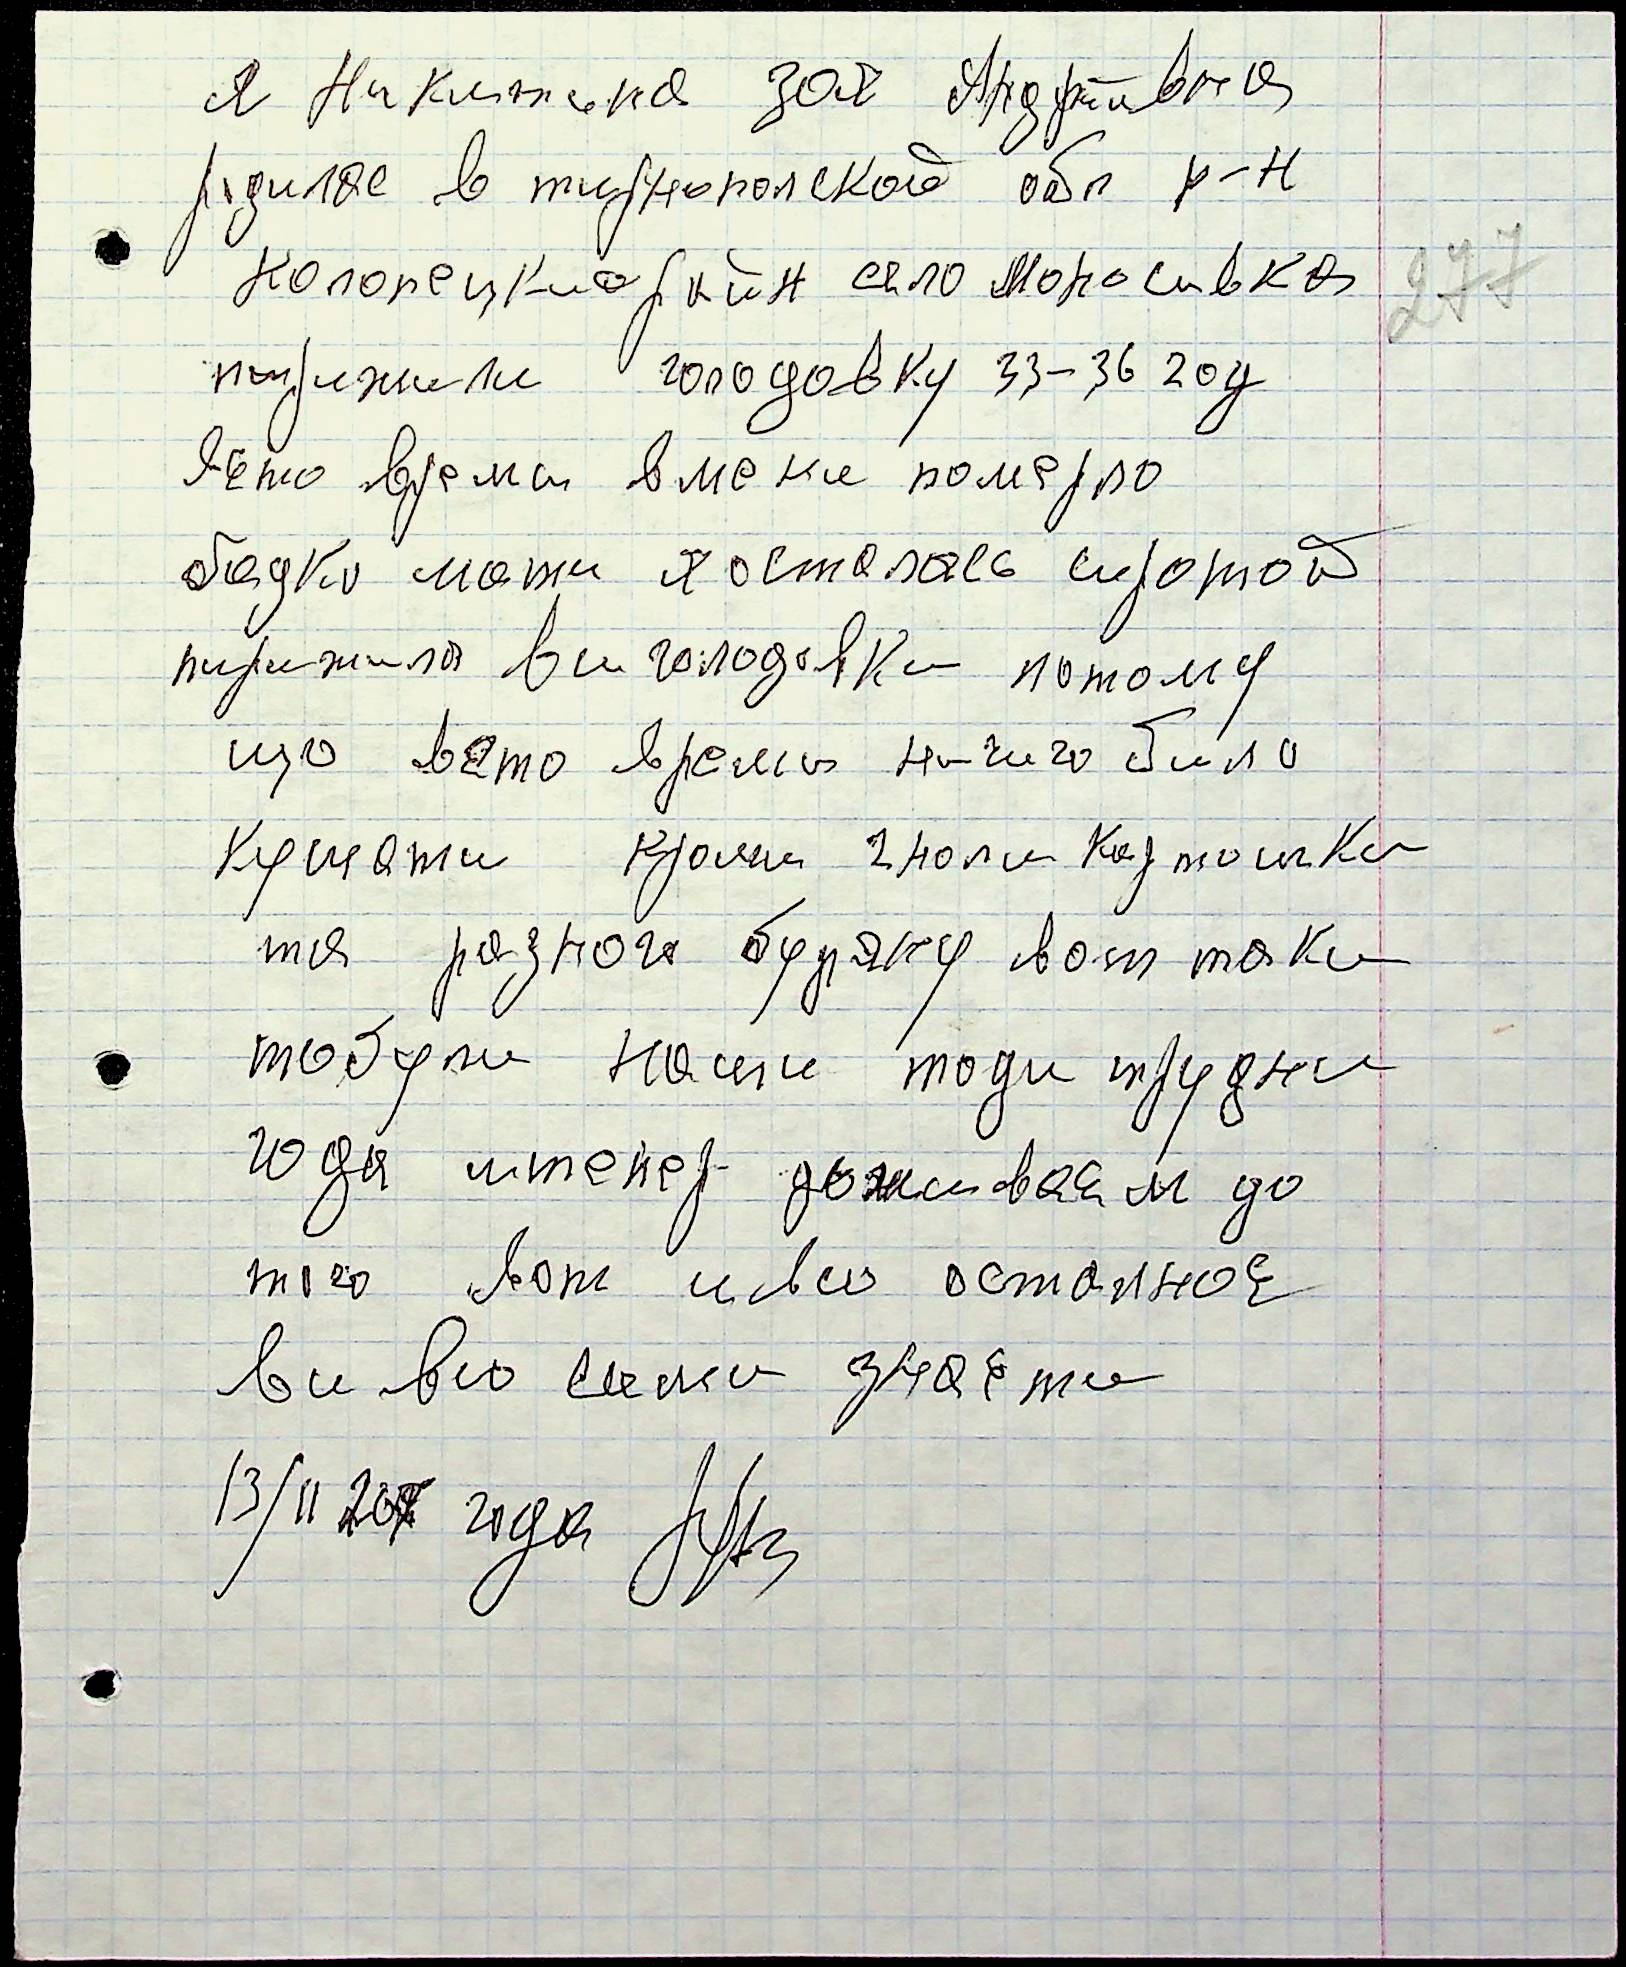 Я Никитина Зоя Андріивна
родилас в тирнополской обл р-н
Колонецкио район село Моносивка
пирижили голодовку 33-36 год
Вето время вмени померло
бадко мати я осталась сиротой
пирижила вси голодовки потому
що вето время ничиго било
кушати кроми гноли картошки
та разного буряку вот таки
тобули наши тоди трудни
года итепер доживаем до
того вот ивсю осталное
ви всю сами знаети
13/11 года
277